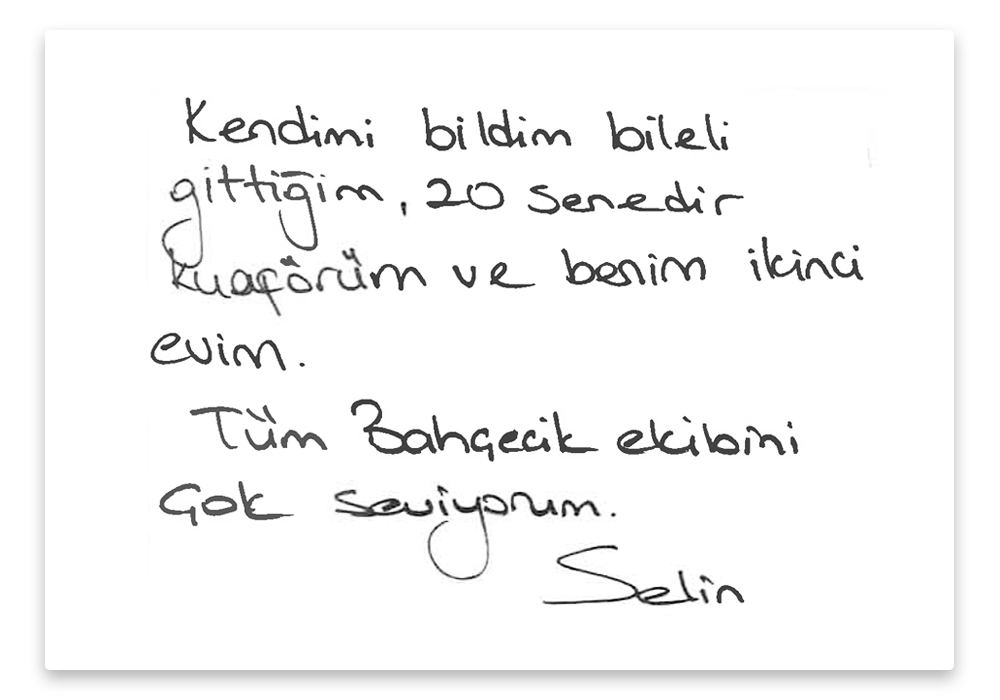 Kendimi bildim bileli
gittiğim, 20 senedir
kuaförüm ve benim ikinci
evim.
Tüm Bahçecik ekibini
Çok seviyorum.
Selin